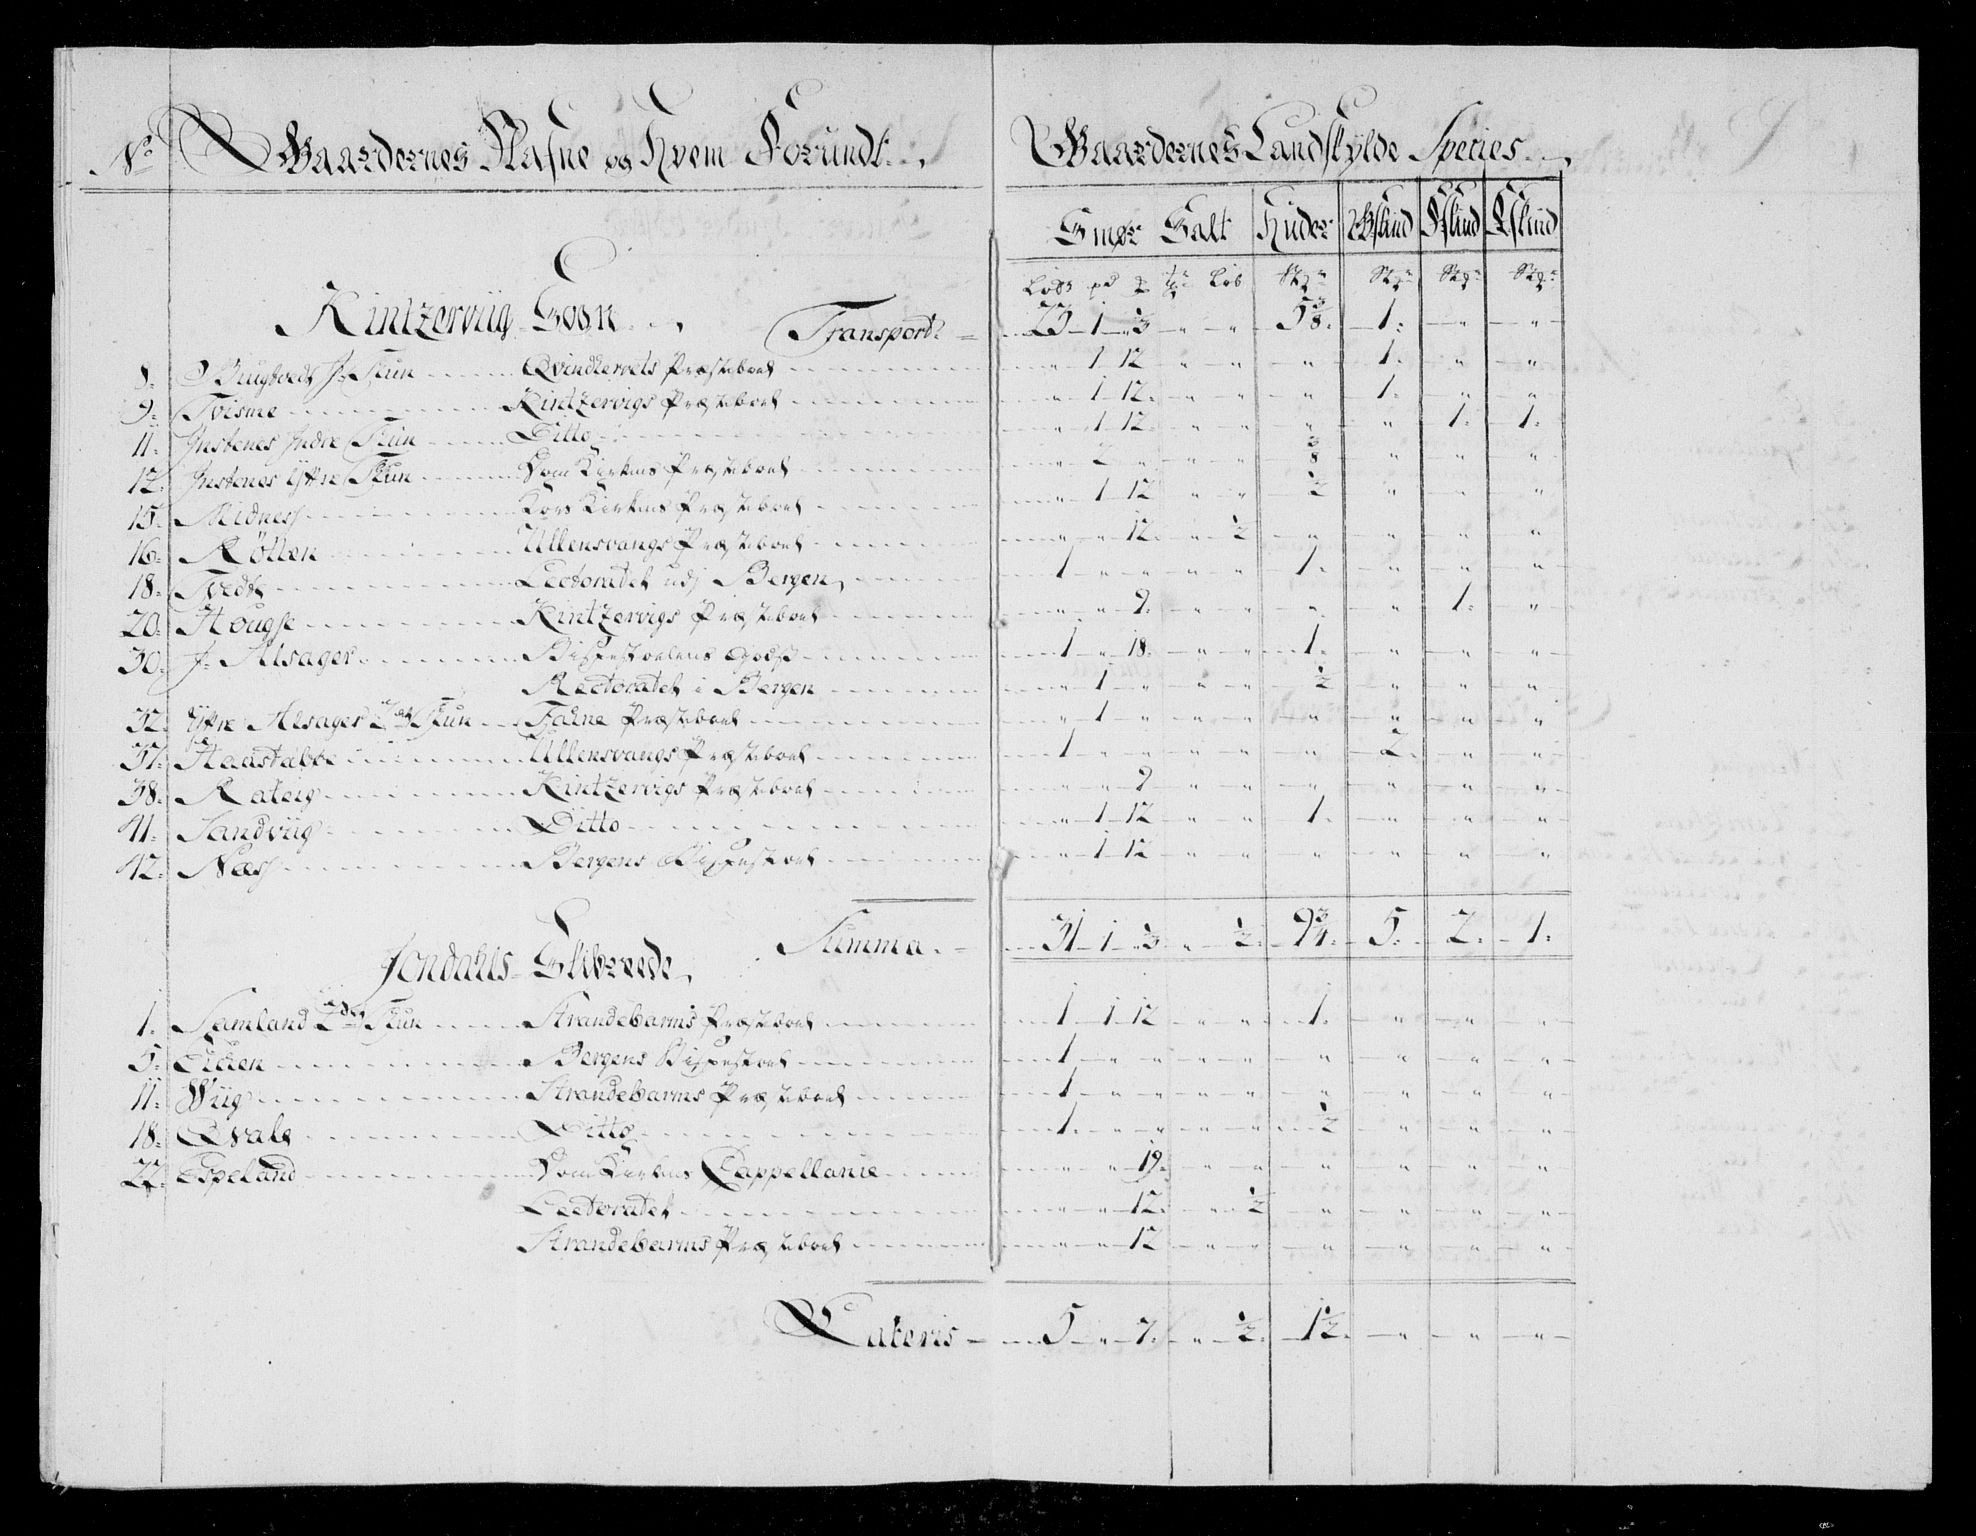 No Gaardernes Nafne og Hvem Forundt. Gaardernes Landskylde Species.
Smør Salt Huder Bskind Fskind Kskind
Løbs pd Løb Stk Stk Stk Stk
Kintzerviig Sogn. Transport 23 1 1/3 " " 5 3/8 1 " "
8. Bugtvedt J: Skun Qvindherrets Præsteboel " 1 12 " " " 1 " "
9. Tvisme Kintzervigs Præsteboel " 1 12 " " " 1 " "
11. Instenes Indre Skun Ditto " 1 12 " " " " 1 1
12. Instenes Yttre Skun Dom Kirkens Præsteboel " 2 " " " 3/8 " " "
15. Midness Kors Kirkens Præsteboel " 1 12 " " 1/2 " " "
16. Røtten Ullensvangs Præsteboel " " 12 " 1/2 " " " "
18. Tvedt Lectoratet udj Bergen 1 " " " " 1 " " "
20. Hougse Kintzervigs Præsteboel " " 9 " " " " 1 "
30. J. Alsager Bispestoelens Godss 1 " 18 " " 1 " " "
Rectoratet i Bergen " 1 " " " 1/2 " " "
32. Yttre Alsager 2de Skun Fahne Præsteboel " 1 " " " " " " "
37. Haastabbe Ullensvangs Præsteboel 1 " " " " " 2 " "
38. Rateig Kintzervigs Præsteboel " " 9 " " " " " "
41. Sandviig Ditto " 1 12 " " 1 " " "
42. Næss Bergens Bispestoel " 1 12 " " " " " "
Summa 31 1 1/3 " 1/2 9 3/4 5 2 1
Jondahls Skibrede
1. Samland 2de Skun Strandebarms Præsteboel 1 1 12 " " 1 " " "
5. Eiden Bergens Bispestoel 1 " " " " " " " "
11. Wiig Strandebarms Præsteboel 1 " " " " " " " "
18. Qvale Ditto 1 " " " " 1/2 " " "
22. Espeland Dom Kirkens Cappellanie " " 19 " " " " " "
Lectoratet " " 12 " 1/2 " " " "
Strandebarms Præsteboel " " 12 " " " " " "
Lateris 5 " 7 " 1/2 1 1/2 " " "